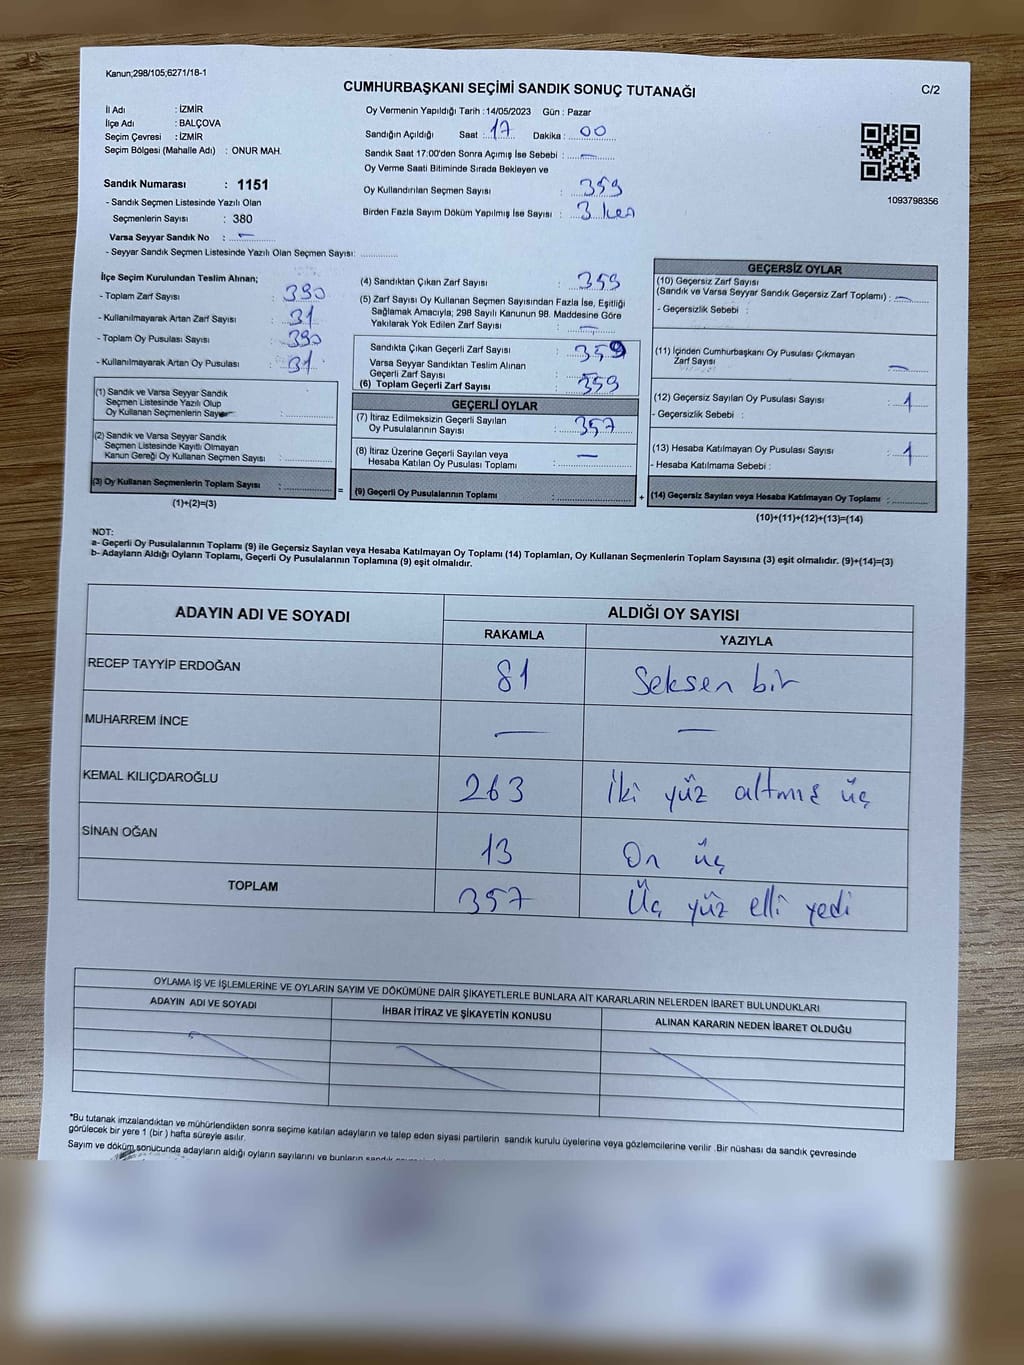 Kanun;298/105;6271/18-1
CUMHURBAŞKANI SEÇİMİ SANDIK SONUÇ TUTANAĞI
C/2
İl Adı : İZMİR
İlçe Adı : BALÇOVA
Seçim Çevresi : İZMİR
Seçim Bölgesi (Mahalle Adı) : ONUR MAH.
Sandık Numarası : 1151
- Sandık Seçmen Listesinde Yazılı Olan
Seçmenlerin Sayısı : 380
Varsa Seyyar Sandık No : –
- Seyyar Sandık Seçmen Listesinde Yazılı Olan Seçmen Sayısı:
Oy Vermenin Yapıldığı Tarih : 14/05/2023 Gün : Pazar
Sandığın Açıldığı Saat : 17 Dakika : 00
Sandık Saat 17:00'den Sonra Açımış İse Sebebi : –
Oy Verme Saati Bitiminde Sırada Bekleyen ve
Oy Kullandırılan Seçmen Sayısı : 359
Birden Fazla Sayım Döküm Yapılmış İse Sayısı : 3 kez
1093798356
İlçe Seçim Kurulundan Teslim Alınan;
- Toplam Zarf Sayısı : 390
- Kullanılmayarak Artan Zarf Sayısı : 31
- Toplam Oy Pusulası Sayısı : 390
- Kullanılmayarak Artan Oy Pusulası : 31
(1) Sandık ve Varsa Seyyar Sandık
Seçmen Listesinde Yazılı Olup
Oy Kullanan Seçmenlerin Sayısı :
(2) Sandık ve Varsa Seyyar Sandık
Seçmen Listesinde Kayıtlı Olmayan
Kanun Gereği Oy Kullanan Seçmen Sayısı :
(3) Oy Kullanan Seçmenlerin Toplam Sayısı :
(1)+(2)=(3)
(4) Sandıktan Çıkan Zarf Sayısı : 359
(5) Zarf Sayısı Oy Kullanan Seçmen Sayısından Fazla İse, Eşitliği
Sağlamak Amacıyla; 298 Sayılı Kanunun 98. Maddesine Göre
Yakılarak Yok Edilen Zarf Sayısı : –
Sandıkta Çıkan Geçerli Zarf Sayısı : 359
Varsa Seyyar Sandıktan Teslim Alınan
Geçerli Zarf Sayısı :
(6) Toplam Geçerli Zarf Sayısı : 359
GEÇERLİ OYLAR
(7) İtiraz Edilmeksizin Geçerli Sayılan
Oy Pusulalarının Sayısı : 357
(8) İtiraz Üzerine Geçerli Sayılan veya
Hesaba Katılan Oy Pusulası Toplamı : –
= (9) Geçerli Oy Pusulalarının Toplamı :
GEÇERSİZ OYLAR
(10) Geçersiz Zarf Sayısı
(Sandık ve Varsa Seyyar Sandık Geçersiz Zarf Toplamı) : –
- Geçersizlik Sebebi :
(11) İçinden Cumhurbaşkanı Oy Pusulası Çıkmayan
Zarf Sayısı : –
(12) Geçersiz Sayılan Oy Pusulası Sayısı : 1
- Geçersizlik Sebebi :
(13) Hesaba Katılmayan Oy Pusulası Sayısı : 1
- Hesaba Katılmama Sebebi :
+ (14) Geçersiz Sayılan veya Hesaba Katılmayan Oy Toplamı :
(10)+(11)+(12)+(13)=(14)
NOT:
a- Geçerli Oy Pusulalarının Toplamı (9) ile Geçersiz Sayılan veya Hesaba Katılmayan Oy Toplamı (14) Toplamları, Oy Kullanan Seçmenlerin Toplam Sayısına (3) eşit olmalıdır. (9)+(14)=(3)
b- Adayların Aldığı Oyların Toplamı, Geçerli Oy Pusulalarının Toplamına (9) eşit olmalıdır.
ADAYIN ADI VE SOYADI ALDIĞI OY SAYISI
RAKAMLA YAZIYLA
RECEP TAYYİP ERDOĞAN 81 Seksen bir
MUHARREM İNCE – –
KEMAL KILIÇDAROĞLU 263 İki yüz altmış üç
SİNAN OĞAN 13 On üç
TOPLAM 357 Üç yüz elli yedi
OYLAMA İŞ VE İŞLEMLERİNE VE OYLARIN SAYIM VE DÖKÜMÜNE DAİR ŞİKAYETLERLE BUNLARA AİT KARARLARIN NELERDEN İBARET BULUNDUKLARI
ADAYIN ADI VE SOYADI İHBAR İTİRAZ VE ŞİKAYETİN KONUSU ALINAN KARARIN NEDEN İBARET OLDUĞU
*Bu tutanak imzalandıktan ve mühürlendikten sonra seçime katılan adayların ve talep eden siyasi partilerin sandık kurulu üyelerine veya gözlemcilerine verilir .Bir nüshası da sandık çevresinde
görülecek bir yere 1 (bir ) hafta süreyle asılır.
Sayım ve döküm sonucunda adayların aldığı oyların sayılarını ve bunların